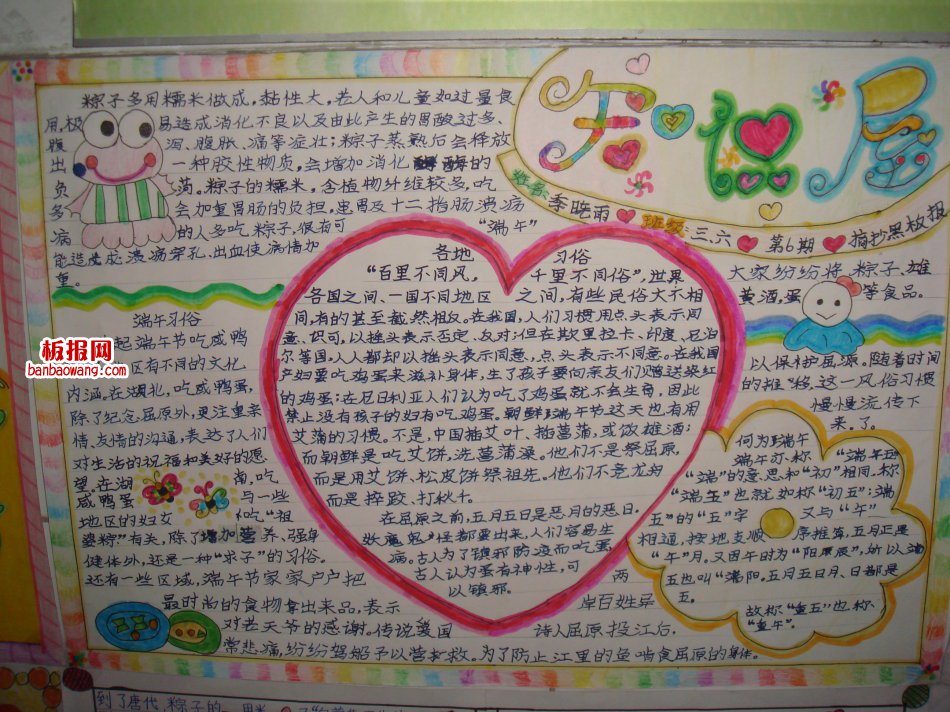 粽子多用糯米做成,黏性大,若人和儿童如过量食
用,极易造成消化不良以及由此产生的胃酸过多、
腹泻、腹胀、痛等症壮;粽子蒸熟后会释放
出一种胶性物质,会增加消化酶的
负荷.粽子的糯米,含植物纤维较多,吃
多会加重胃肠的负担,患胃及十二指肠溃疡
病的人多吃粽子,很有可
能造成溃疡穿孔、出血使病情加
重。
姓名:季晓雨 班级:三.六 第6期 摘抄黑板报
端午习俗
起端午节吃咸鸭
区有不同的文化
内涵。在湖北,吃咸鸭蛋,
除了纪念屈原外,更注重亲
情、友情的沟通,表达了人们
对生活的祝福和美好的愿
望。在湖南,吃
咸鸭蛋与一些
地区的妇女吃"祖
婆粽"有关,除了增加营养、强身
健体外,还是一种"求子"的习俗。
还有一些区域,端午节家家户户把
最时尚的食物拿出来品,表示
对老天爷的感谢。传说爱国
"端午"
各地 习俗
"百里不同风, 千里不同俗",世界
各国之间、一国不同地区 之间,有些民俗大不相
同,有的甚至截然相反。在我国,人们习惯用点头表示同
意、认可,以摇头表示否定、反对;但在斯里拉卡、印度、尼泊
尔等国,人人都却以摇头表示同意,点头表示不同意。在我国
产妇要吃鸡蛋来滋补身体,生了孩子要向亲友们赠送染红
的鸡蛋;在尼日利亚人们认为吃了鸡蛋就不会生育,因此
禁止没有孩子的妇有吃鸡蛋。朝鲜端午节这天也有用
艾蒲的习惯。不是,中国插艾叶、插菖蒲,或饮雄酒;
而朝鲜是吃艾饼、洗菖蒲澡。他们不是祭屈原,
而是用艾饼、松皮饼祭祖先。他们不竞龙舟
而是摔跤、打秋千。
在屈原之前,五月五日是恶月的恶日,
妖魔鬼怪都要出来,人们容易生
病。古人为了镇邪防疫而吃蛋,
古人认为蛋有神性,可
以镇邪。
两
岸百姓异
诗人屈原投江后,
常悲痛,纷纷驾船子以营救。为了防止江里的鱼啃食屈原的身体。
大家纷纷将粽子、雄
黄酒,蛋等食品。
以保护屈原。随着时间
的推移,这一风俗习惯
慢慢流传下
来。了。
何为端午
端午亦称"端午五"
"端"的意思和"初"相同,称
"端五"也就如称"初五";端
五"的"五"字又与"午"
相通,按地支顺序推算,五月正是
"午"月。又因午时为"阳辰",所以端
五也叫"端阳。五月五日月、日都是
五。
故称"重五"也称
"重午"。
板报网
banbaowang.com
到了唐代,粽子的